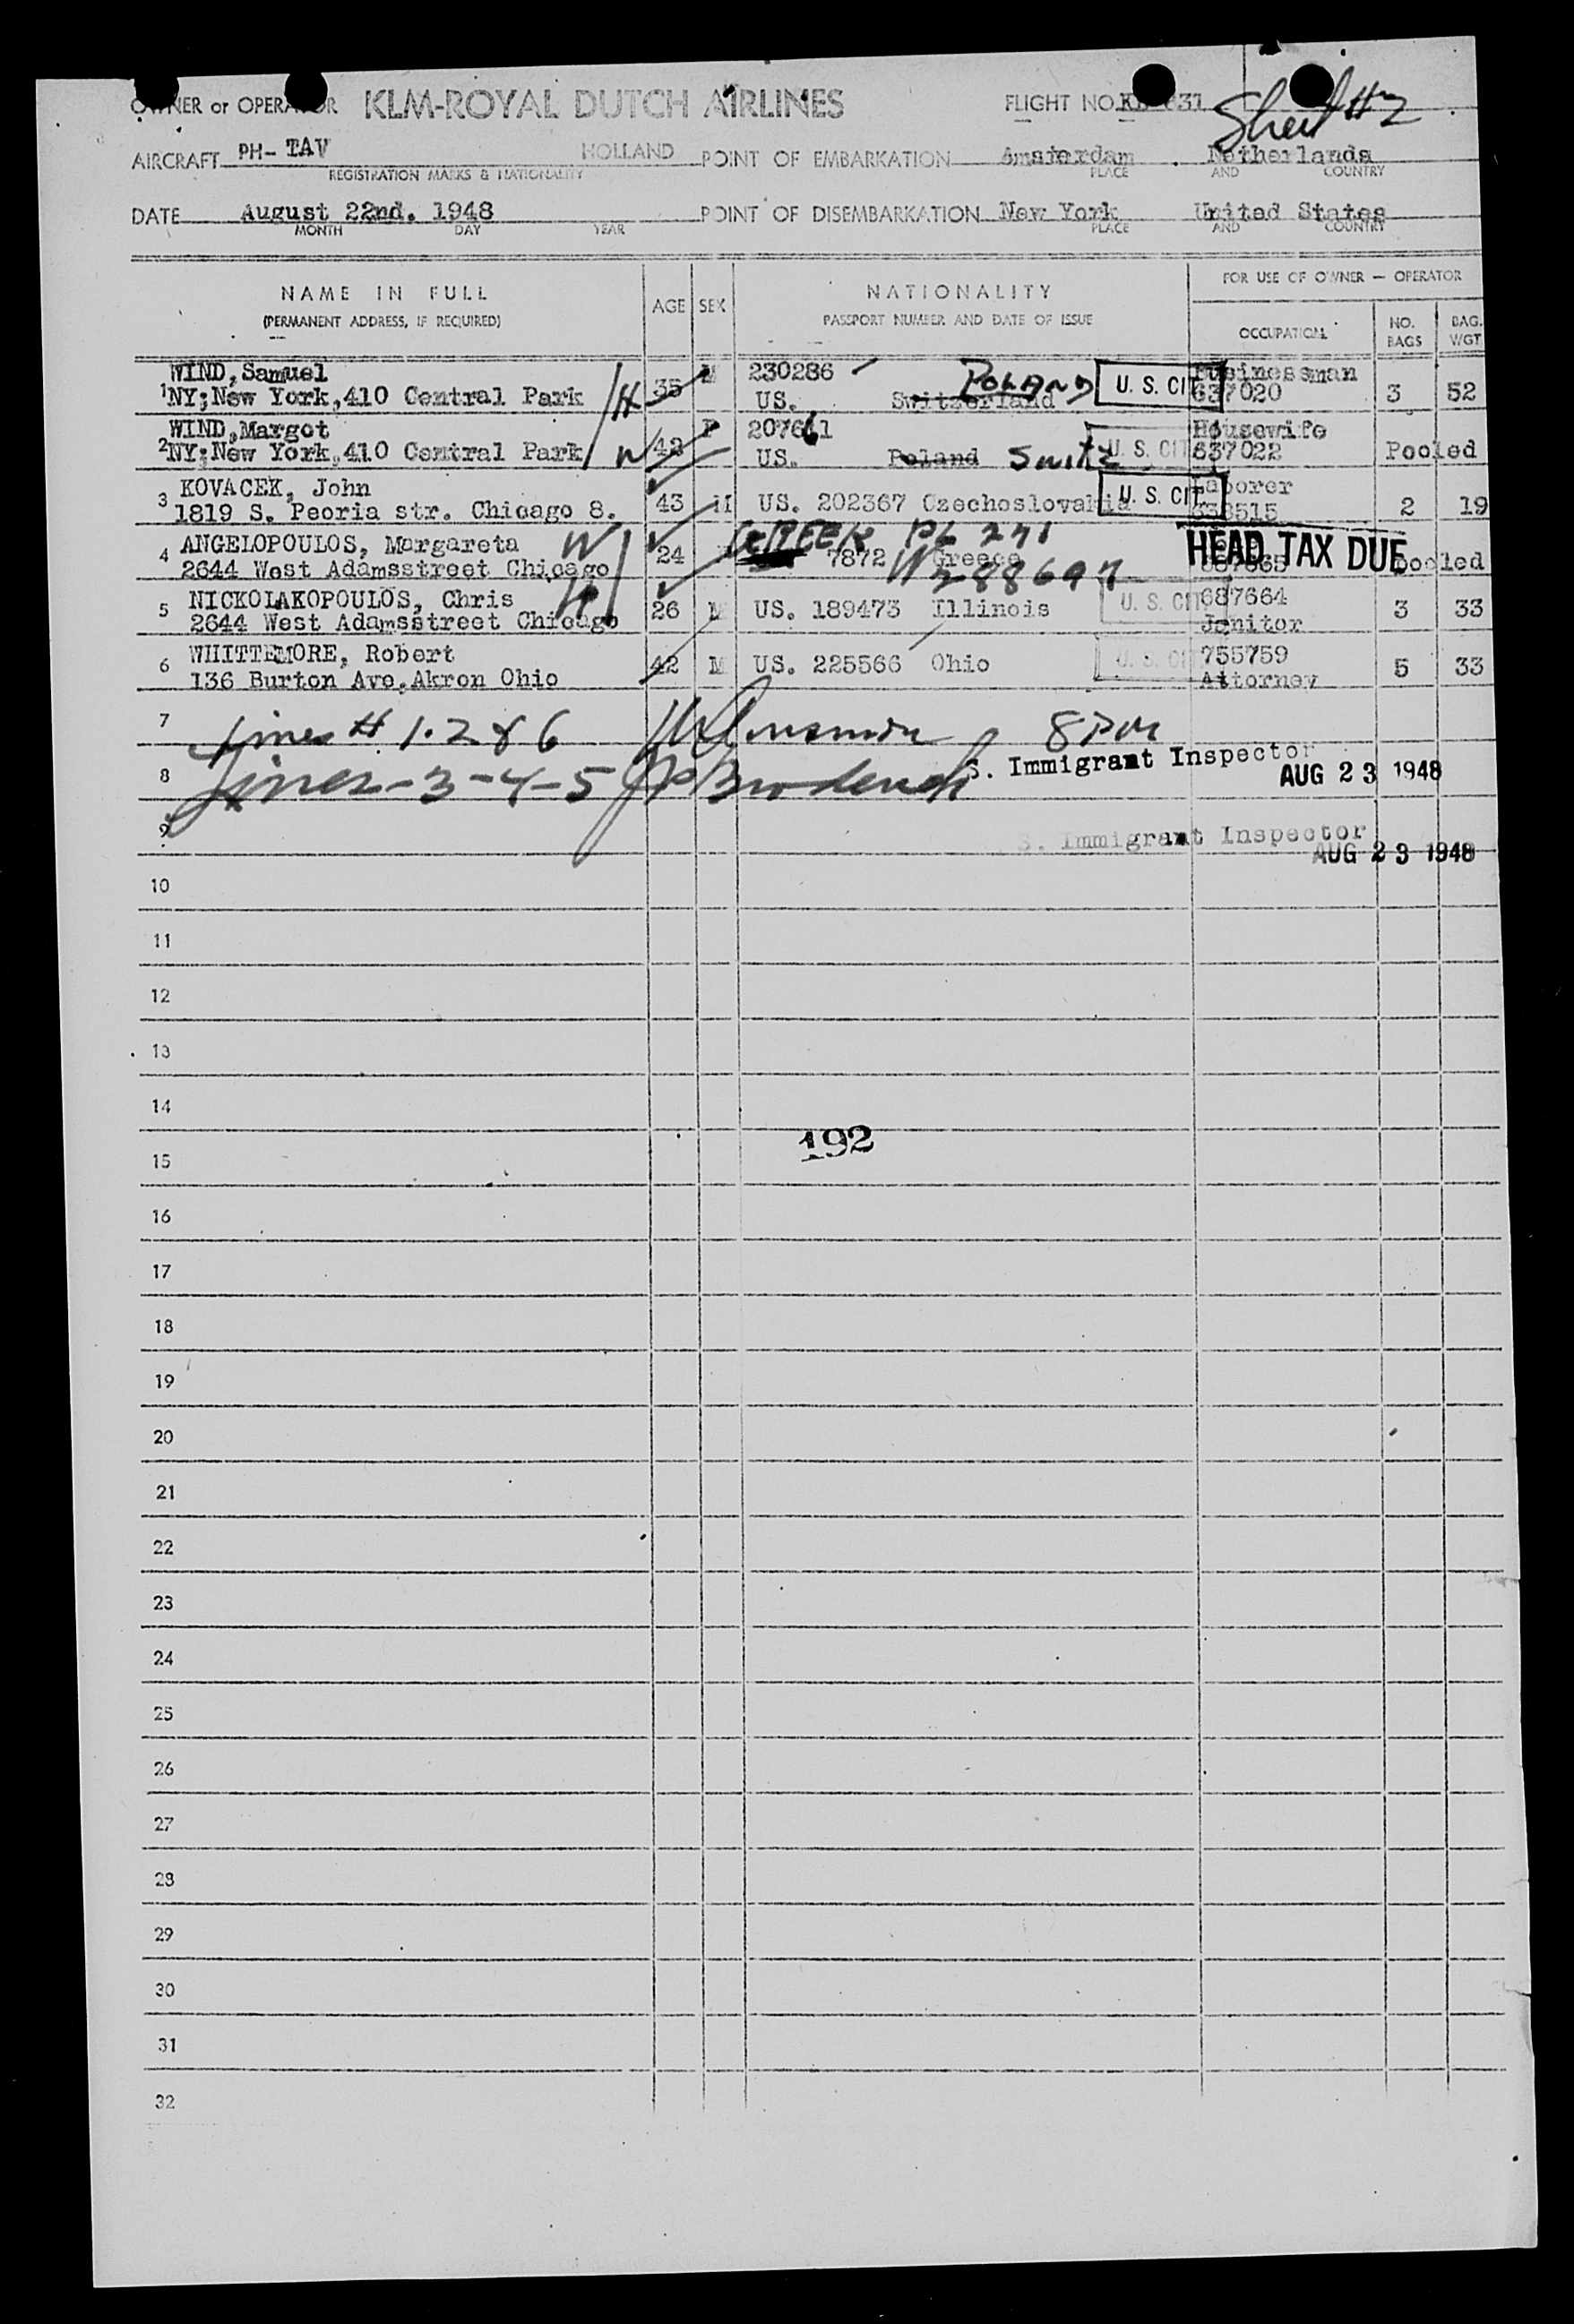 OWNER or OPERATOR KLM-ROYAL DUTCH AIRLINES FLIGHT NO. Sheet #2
AIRCRAFT PH- TAV HOLLAND POINT OF EMBARKATION Amsterdam Netherlands
REGISTRATION MARKS & NATIONALITY PLACE AND COUNTRY
DATE August 22nd. 1948 POINT OF DISEMBARKATION New York United States
MONTH DAY YEAR PLACE AND COUNTRY
NAME IN FULL AGE SEX NATIONALITY FOR USE OF OWNER — OPERATOR
(PERMANENT ADDRESS, IF REQUIRED) PASSPORT NUMBER AND DATE OF ISSUE OCCUPATION NO. BAGS BAG. WGT
WIND, Samuel M 230286 Businessman
1 NY; New York, 410 Central Park H 35 US. Switzerland POLAND U. S. CIT 637020 3 52
WIND, Margot F 207661 Housewife
2 NY; New York, 410 Central Park W 42 US. Poland Switz U. S. CIT 637022 Pooled
KOVACEK, John Laborer
3 1819 S. Peoria str. Chicago 8. 43 M US. 202367 Czechoslovakia U. S. CIT 2 19
ANGELOPOULOS, Margareta W GREEK PL 271
4 2644 West Adamsstreet Chicago 24 7872 Greece HEAD TAX DUE Pooled
288697
NICKOLAKOPOULOS, Chris H 687664
5 2644 West Adamsstreet Chicago 26 M US. 189473 Illinois U. S. CIT Janitor 3 33
WHITTEMORE, Robert 755759
6 136 Burton Ave. Akron Ohio 42 M US. 225566 Ohio U. S. CIT Attorney 5 33
7 Lines # 1.2 & 6 8 PM
8 Lines - 3 - 4 - 5 S. Immigrant Inspector
AUG 23 1948
9 S. Immigrant Inspector
AUG 23 1948
10
11
12
13
14
192
15
16
17
18
19
20
21
22
23
24
25
26
27
28
29
30
31
32